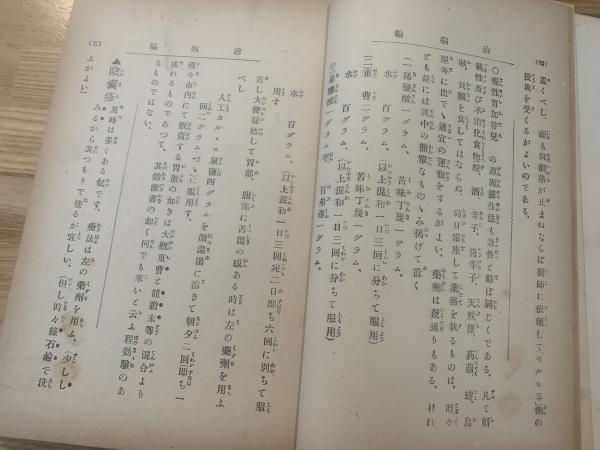 治病編
(四)
置くべし、而も胃劇藥が止まぬならば醫師に依頼して「モルヒネ」劑の
投與を受くるがよいのである。
○慢性胃加答兒の原因攝生法も急性と略ぼ同じくである、凡て刺
戟性及び不消化食物殊に酒、辛子、唐辛子、天麩羅、蒟蒻、蛸、烏
賊、貝類を食してはならぬ、尚日常座して業務を執るものは、時々
屋外に出でゝ適宜の運動をするがよい、藥劑は數通りもある、けれ
ども茲には其中の簡單なものゝみ掲げて置く
(一)稀鹽酸一グラム、苦味丁幾一グラム、
水 百グラム、(以上混和一日三回に分ちて服用)
(二)重曹二グラム、苦味丁幾一グラム、
水 百グラム、(以上混和一日三回に分ちて服用)
(三)稀鹽酸一グラム半、百弗聖一グラム、
治病編
(五)
水 百グラム、(以上混和一日三回宛二日即ち六回に別ちて服
用す
若し大便祕結して胃部、腹部に苦悶の感ある時は左の藥劑を用ふ
べし
人工カル、ス泉鹽四グラムを微温湯に溶きて朝夕二回即ち一
回二グラムづゝに服用す、
現今市内にて販賣する胃散の如きは大概重曹と龍膽末等の混合より
成れるものでもつて、其効能書の如く何でも永いと云ふ程効驗のあ
るものではない、
▲陰嚢疹 夏時は多くある奴です、療法は左の藥劑を用ふ、少しし
みるから其つもりで塗るが宜しい、(但し時々緑石鹼で洗
ふがよい)